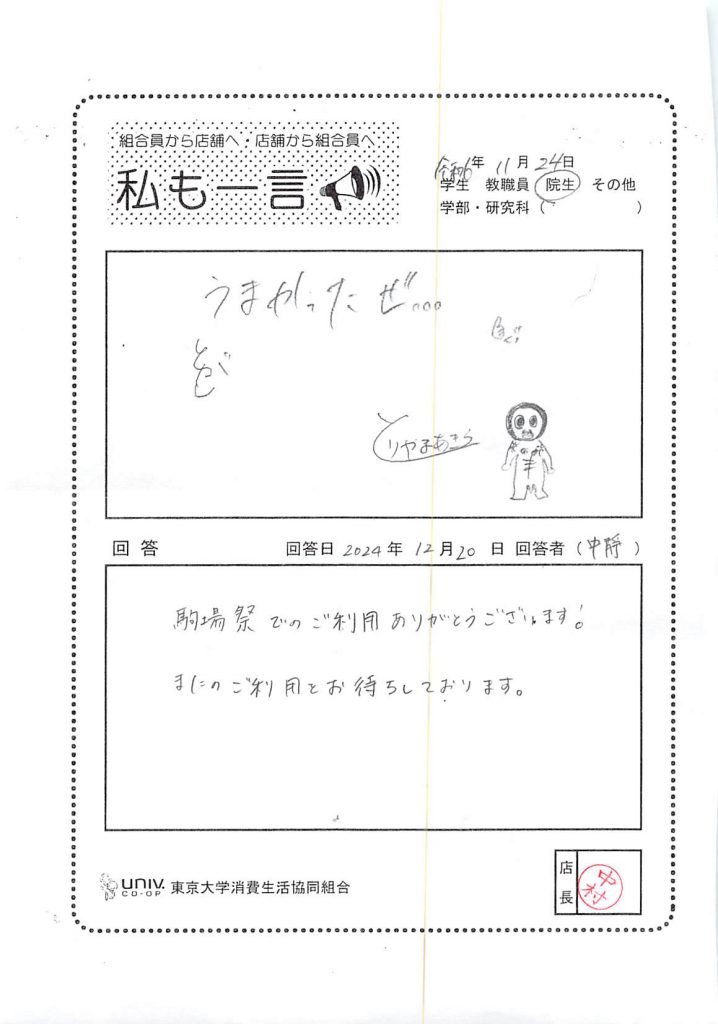 組合員から店舗へ・店舗から組合員へ
私も一言
令和6年 11月 24日
学生 教職員 院生 その他
学部・研究科( )
うまかったぜ...
とりやまあきら
回答 回答日 2024年 12月20日 回答者(中静)
駒場祭でのご利用ありがとうございます!
またのご利用とお待ちしております。
UNIV. CO-OP 東京大学消費生活協同組合
店長 中村